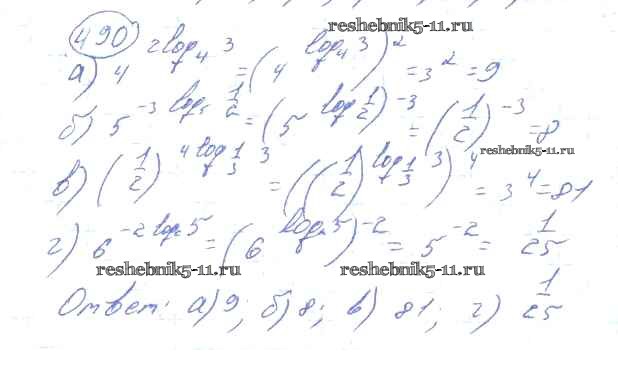 490
reshebnik5-11.ru
а) 4^(2 log_4 3) = (4^(log_4 3))^2 = 3^2 = 9
б) 5^(-3 log_5 1/2) = (5^(log 1/2))^-3 = (1/2)^-3 = 8
reshebnik5-11.ru
в) (1/2)^(4 log_(1/3) 3) = ((1/2)^(log_(1/3) 3))^4 = 3^4 = 81
г) 6^(-2 log_6 5) = (6^(log_6 5))^-2 = 5^-2 = 1/25
reshebnik5-11.ru reshebnik5-11.ru
Ответ: а) 9; б) 8; в) 81; г) 1/25